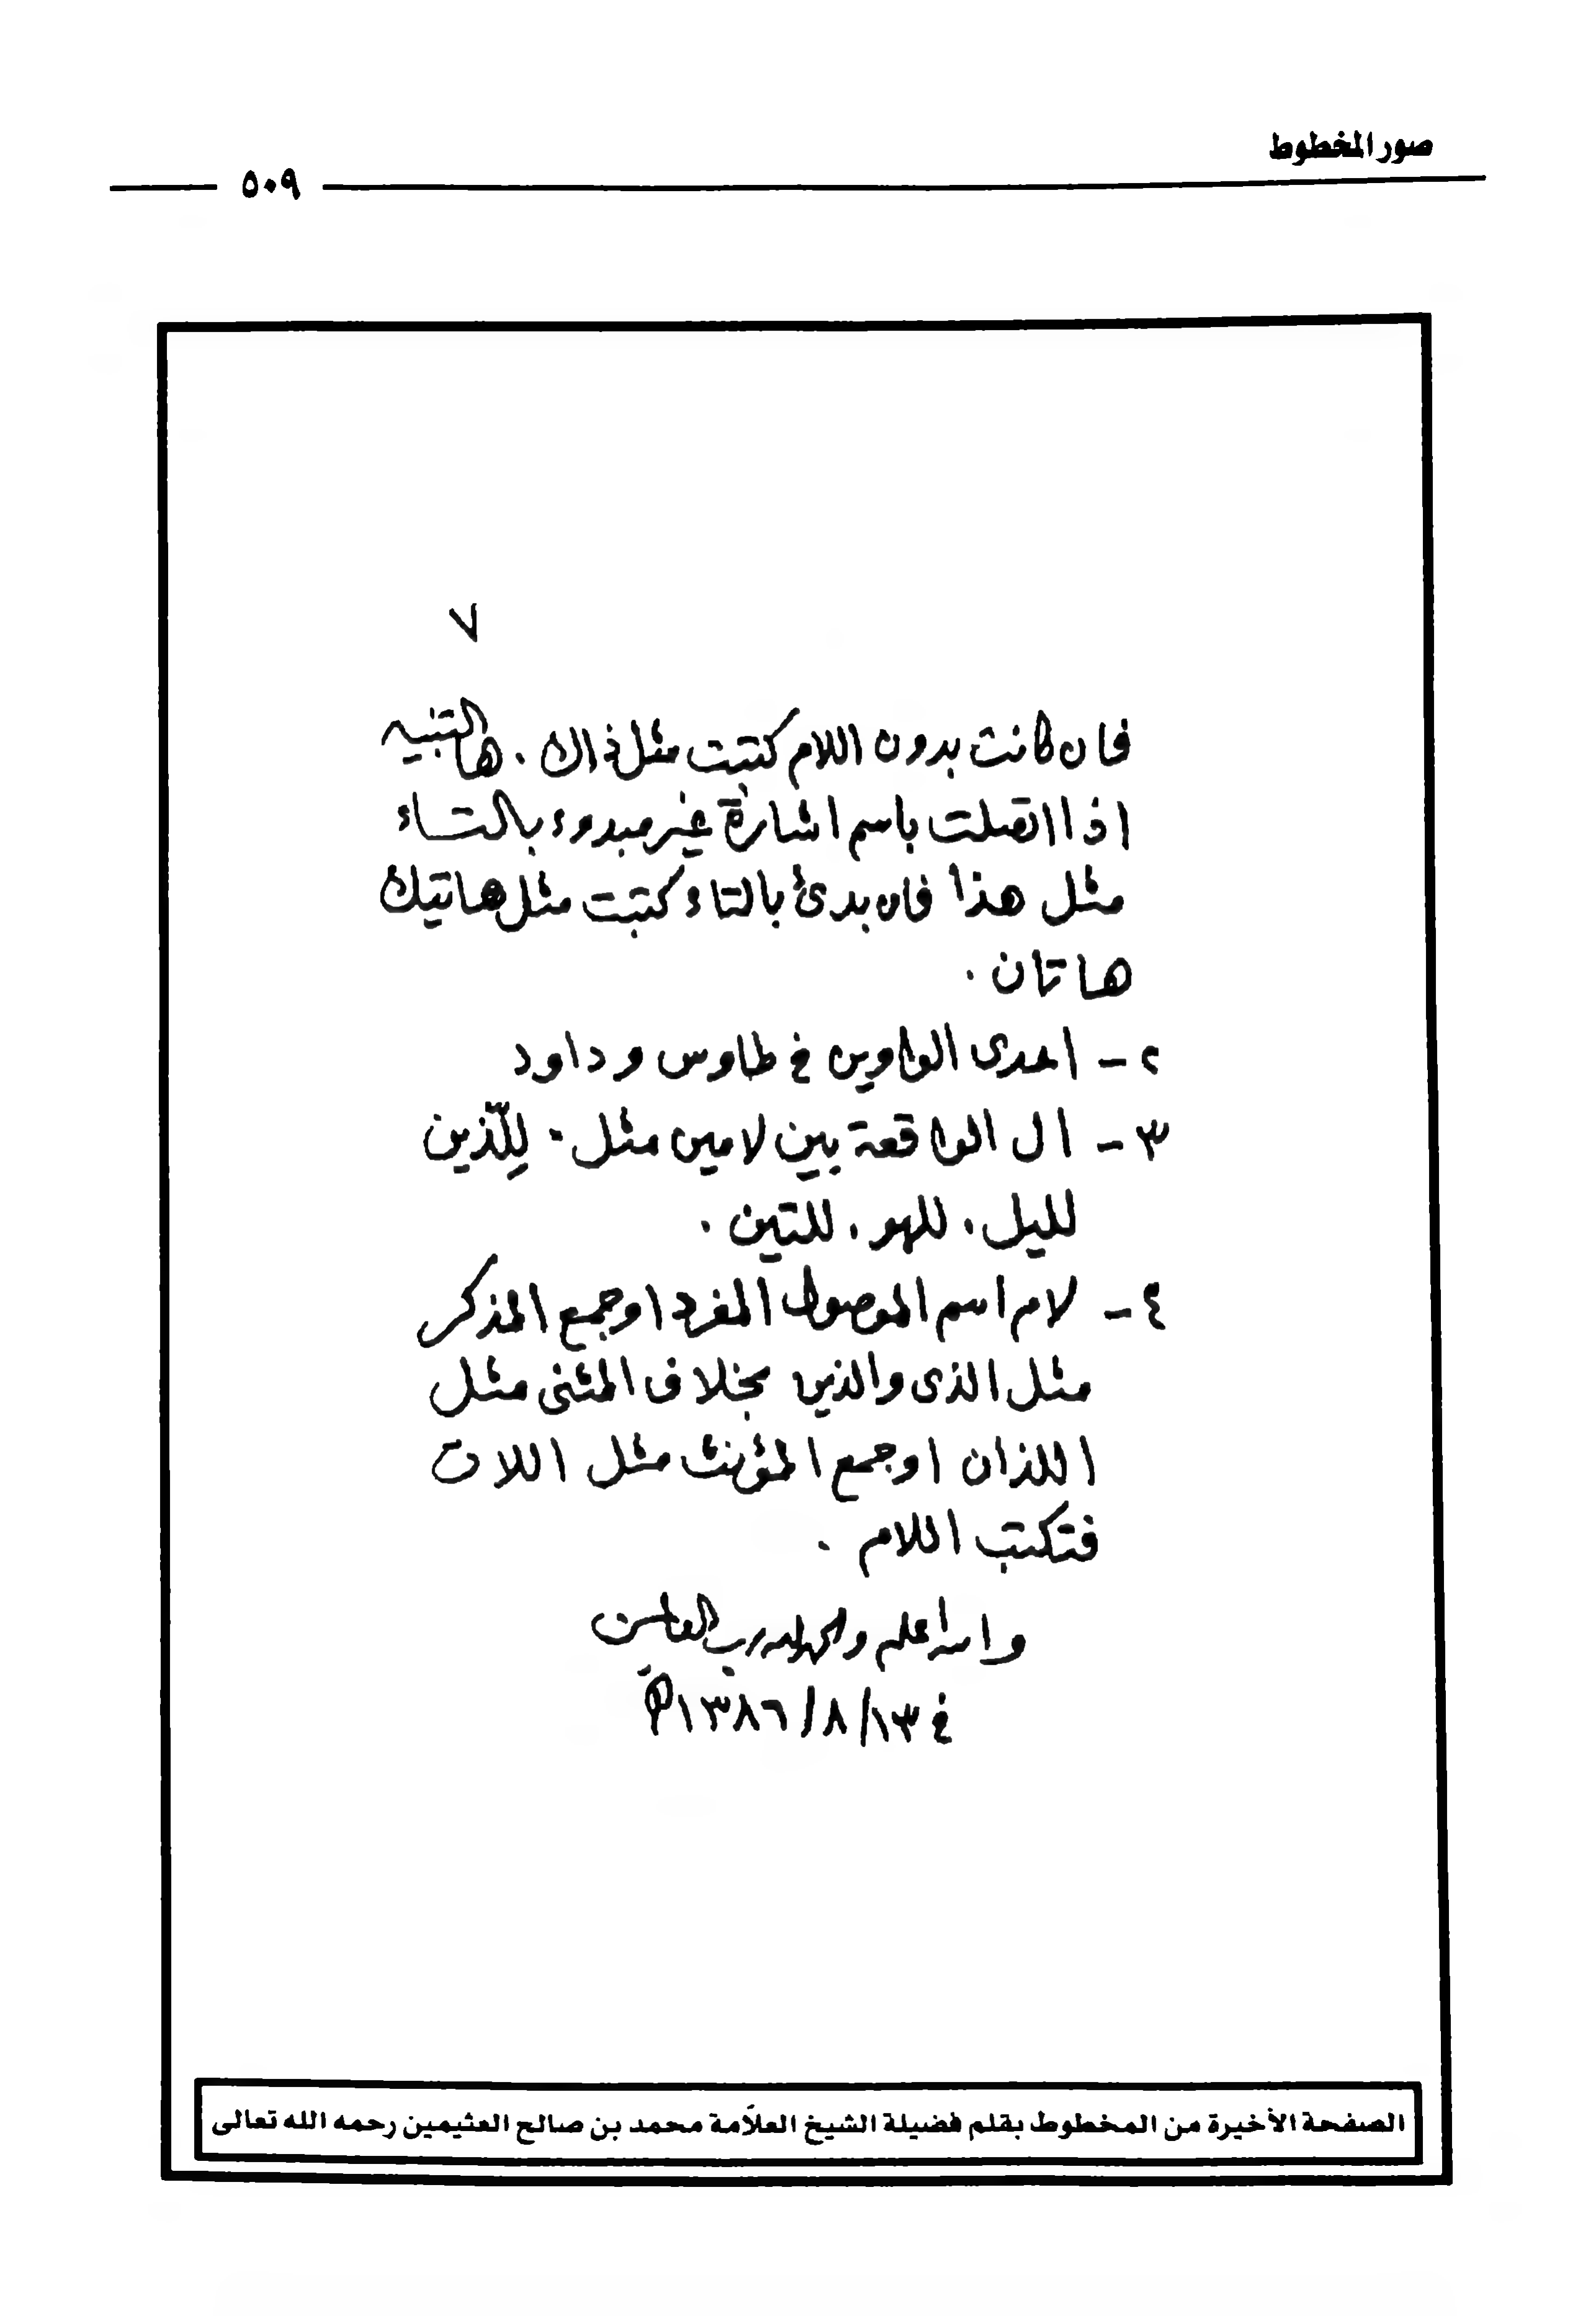 صور المخطوط
٥٠٩
٧
فان كانت بدون اللام كتبت مثل ذاك . ها التنبيه
اذا اتصلت باسم اشارة غير مبدوء بالتاء
مثل هذا فان بدئ بالتاء كتبت مثل هاتيك
هاتان .
٢ - احدى الواوين في طاوس و داود
٣ - ال الواقعة بين لامين مثل : لِلَّذين
لليل ، للهو ، للتين .
٤ - لام اسم الموصول المفرد او جمع المذكر
مثل الذى والذين بخلاف المثنى مثل
اللذان او جمع المؤنث مثل اللات
فتكتب اللام .
والله اعلم والحمد لله رب العالمين
في ١٣/٨/١٣٨٦ھ
الصفحة الأخيرة من المخطوط بقلم فضيلة الشيخ العلاّمة محمد بن صالح العثيمين رحمه الله تعالى